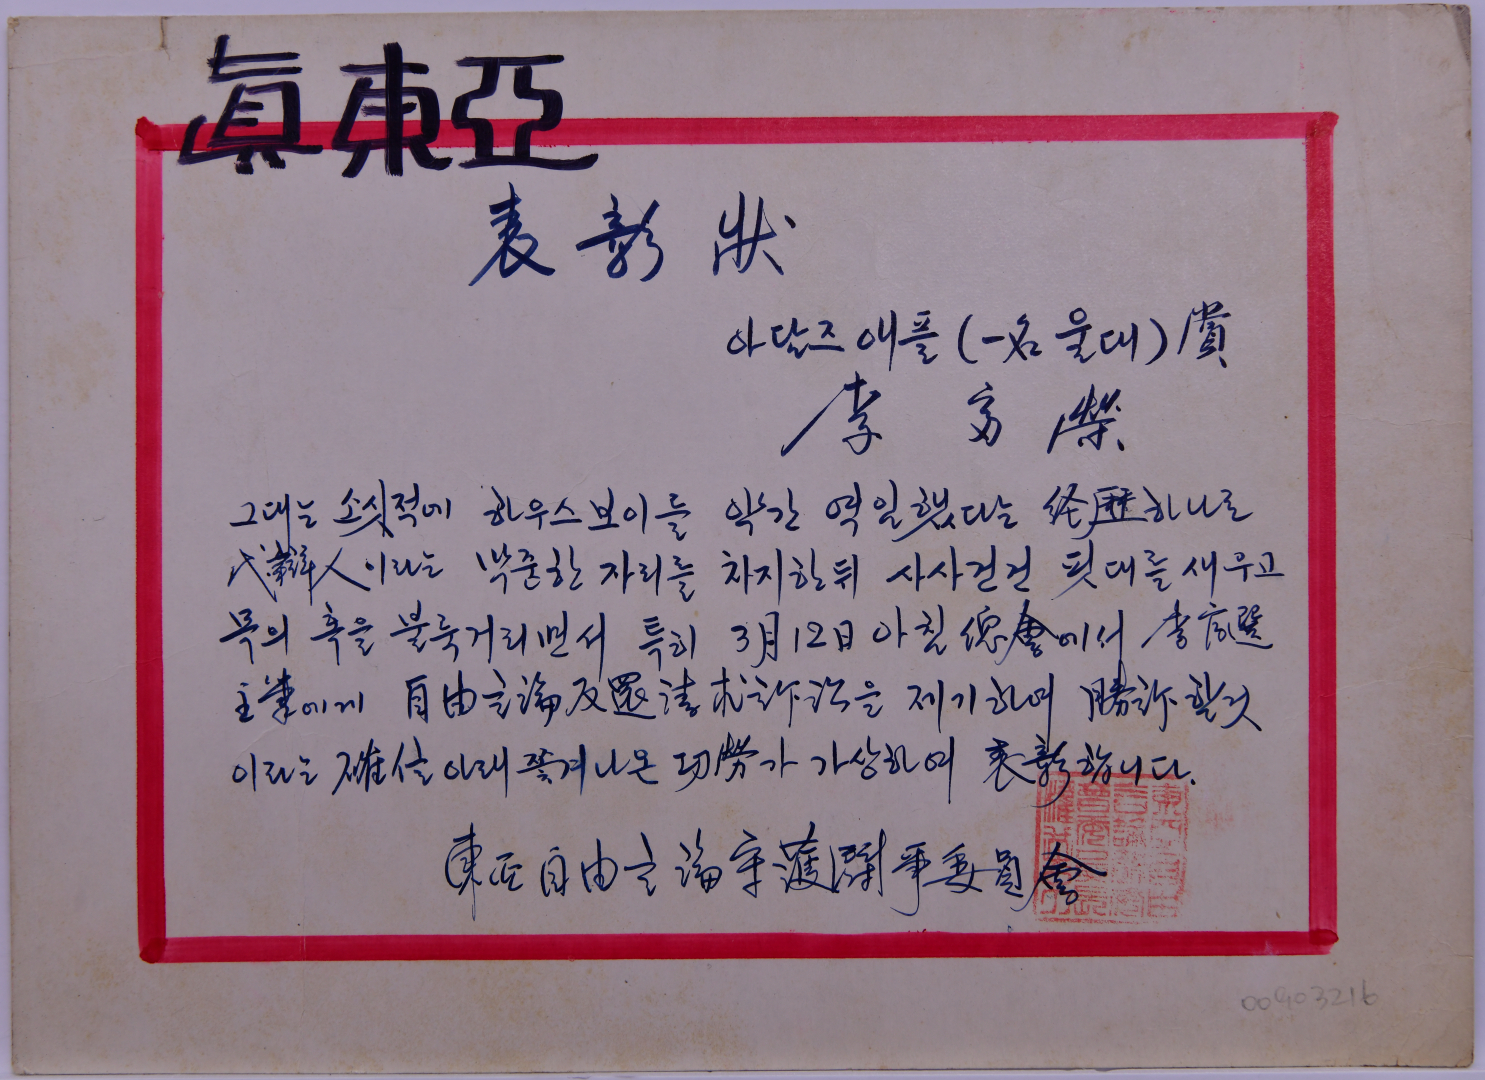 眞東亞
表彰狀
아담즈 애플 (一名 울대) 賞
李富榮
그대는 소싯적에 하우스보이를 약간 역임했다는 経歷하나로
代辯人이라는 막중한 자리를 차지한뒤 사사건건 핏대를 세우고
목의 혹을 불룩거리면서 특히 3月12日 아침 總會에서 李
主筆에게 自由言論返還請求訴訟을 제기하여 勝訴할것
이라는 確信아래 쫓겨나온 功勞가 가상하여 表彰합니다.
東亞自由言論守護鬪爭委員會
00903216